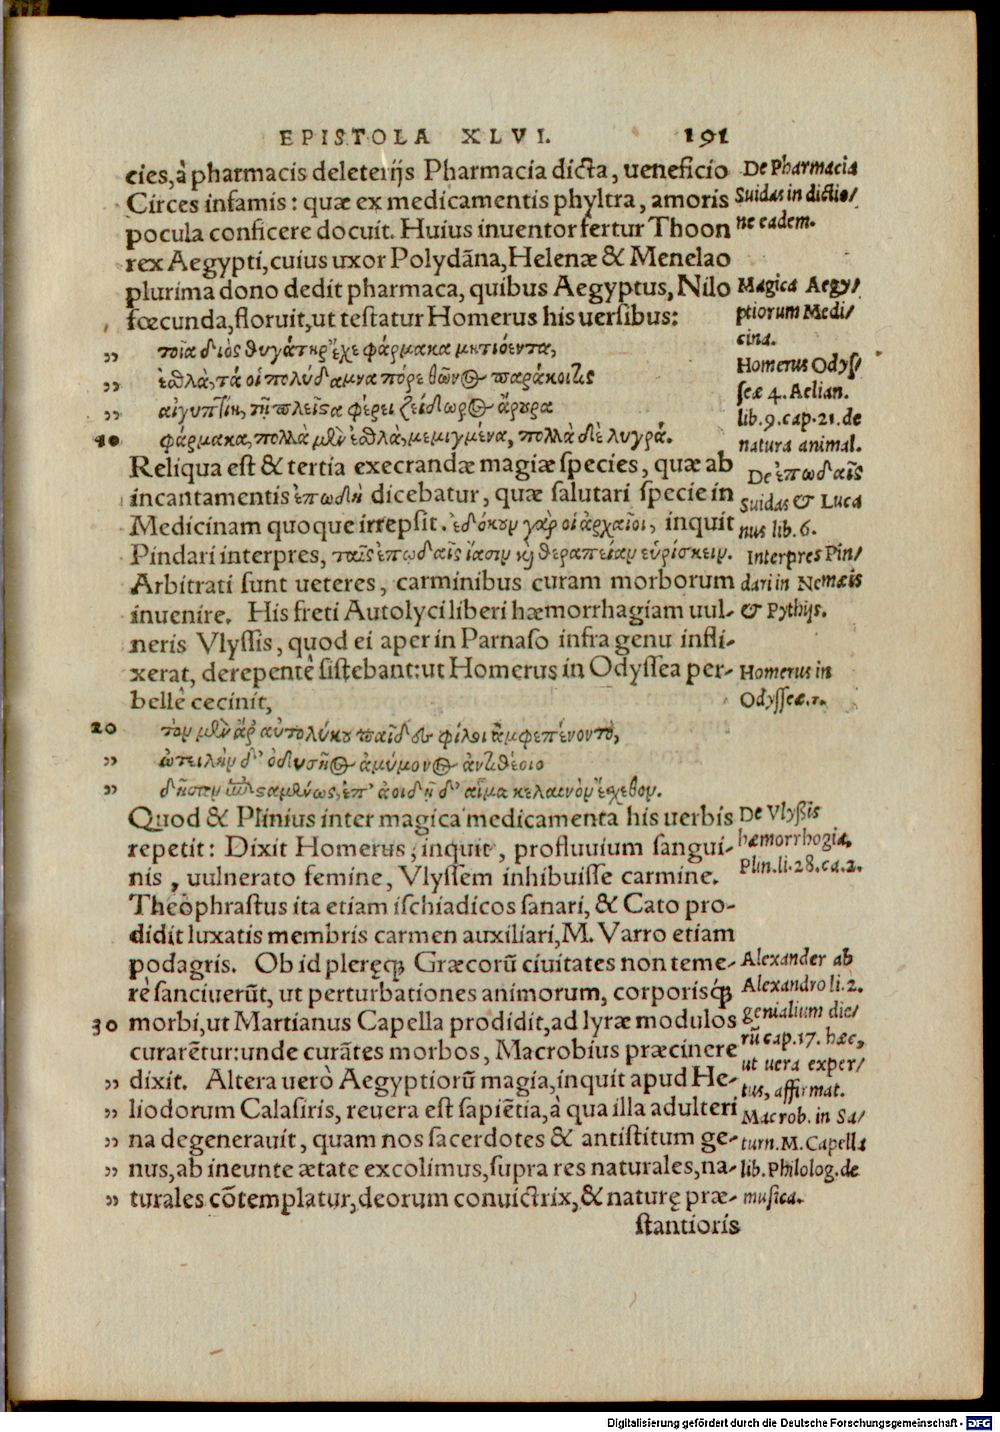 EPISTOLA XLVI. 191
cies, à pharmacis deleterijs Pharmacia dicta, ueneficio
Circes infamis: quæ ex medicamentis phyltra, amoris
pocula conficere docuit. Huius inuentor fertur Thoon
rex Aegypti, cuius uxor Polydāna, Helenæ & Menelao
plurima dono dedit pharmaca, quibus Aegyptus, Nilo
fœcunda, floruit, ut testatur Homerus his uersibus:
„ τοῖα διὸς θυγάτηρ ἔχε φάρμακα μητιόεντα,
„ ἐσθλὰ, τά οἱ πολύδαμνα πόρε θῶνος παράκοιτις
„ αἰγυπτίη, τῇ πλεῖστα φέρει ζείδωρος ἄρουρα
10 φάρμακα, πολλὰ μὲν ἐσθλὰ, μεμιγμένα, πολλὰ δὲ λυγρά.
Reliqua est & tertia execrandæ magiæ species, quæ ab
incantamentis ἐπωδὴ dicebatur, quæ salutari specie in
Medicinam quoque irrepsit. ἐδόκουν γὰρ οἱ ἀρχαῖοι, inquit
Pindari interpres, ταῖς ἐπωδαῖς ἴασιν καὶ θεραπείαν εὑρίσκειν.
Arbitrati sunt ueteres, carminibus curam morborum
inuenire. His freti Autolyci liberi hæmorrhagiam uul-
neris Vlyssis, quod ei aper in Parnaso infra genu infli-
xerat, derepentè sistebant: ut Homerus in Odyssea per-
bellè cecinit,
20 τὸν μὲν ἄρ αὐτολύκου παῖδες φίλοι ἀμφεπένοντο,
„ ὠτειλὴν δ' ὀδυσῆος ἀμύμονος ἀντιθέοιο
„ δῆσαν ἐπισταμένως, ἐπ' ἀοιδῇ δ' αἷμα κελαινὸν ἔσχεθον.
Quod & Plinius inter magica medicamenta his uerbis
repetit: Dixit Homerus, inquit, profluuium sangui-
nis, uulnerato femine, Vlyssem inhibuisse carmine.
Theophrastus ita etiam ischiadicos sanari, & Cato pro-
didit luxatis membris carmen auxiliari, M. Varro etiam
podagris. Ob id pleręq; Græcorū ciuitates non teme-
rè sanciuerūt, ut perturbationes animorum, corporisq́;
30 morbi, ut Martianus Capella prodidit, ad lyræ modulos
curarētur: unde curātes morbos, Macrobius præcinere
„ dixit. Altera uerò Aegyptiorū magia, inquit apud He-
„ liodorum Calasiris, reuera est sapiētia, à qua illa adulteri
„ na degenerauit, quam nos sacerdotes & antistitum ge-
„ nus, ab ineunte ætate excolimus, supra res naturales, na-
„ turales cōtemplatur, deorum conuictrix, & naturę præ-
stantioris
De Pharmacia
Suidas in dictio/
ne eadem.
Magica Aegy/
ptiorum Medi/
cina.
Homerus Odys/
seæ 4. Aelian.
lib. 9. cap. 21. de
natura animal.
De ἐπωδαῖς
Suidas & Luca
nus lib. 6.
Interpres Pin/
dari in Nemæis
& Pythijs.
Homerus in
Odysseæ. τ.
De Vlyßis
hæmorrhogia.
Plin. li. 28. ca. 2.
Alexander ab
Alexandro li. 2.
genialium die/
rū cap. 17. hæc,
ut uera exper/
tus, affirmat.
Macrob. in Sa/
turn. M. Capella
lib. Philolog. de
musica.
Digitalisierung gefördert durch die Deutsche Forschungsgemeinschaft - DFG